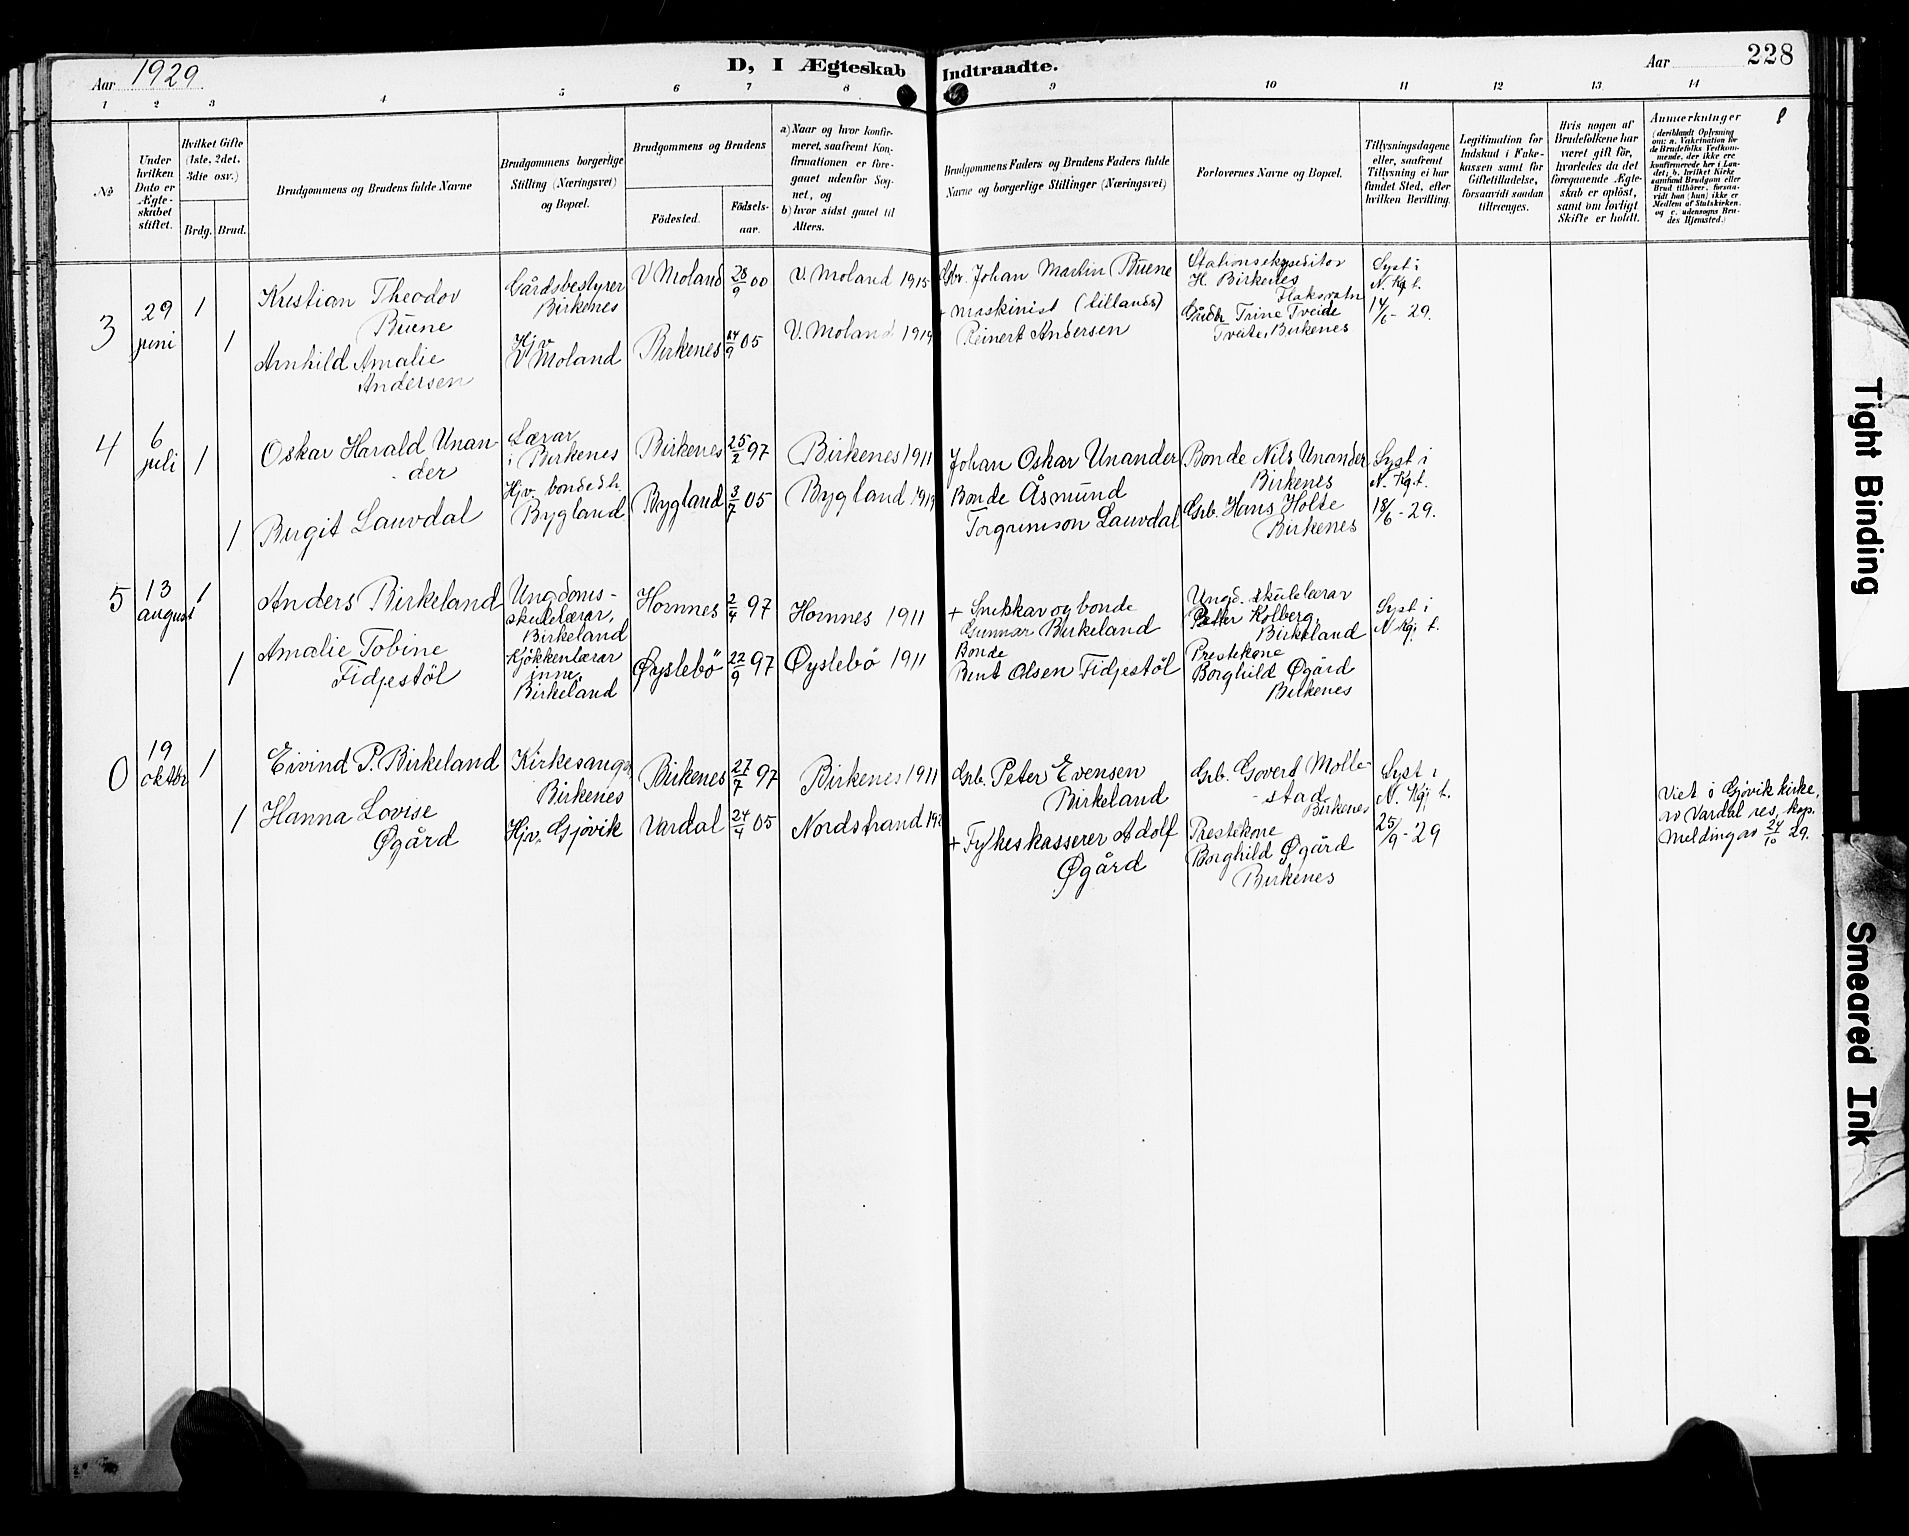 Aar 1929
D, I Ægteskab Indtraadte.
Aar
228
1 2 3 4 5 6 7 8 9 10 11 12 13 14
№
Under
hvilken
Dato er
Ægte-
skabet
stiftet.
Hvilket Gifte
(1ste, 2det,
3die osv.)
Brdg. Brud.
Brudgommens og Brudens fulde Navne
Brudgommens borgerlige
Stilling (Næringsvei)
og Bopæl.
Brudgommens og Brudens
Födested.
Födsels-
aar.
a) Naar og hvor konfir-
meret, saafremt Kon-
firmationen er fore-
gaaet udenfor Sog-
net, og
b) hvor sidst gaaet til
Alters.
Brudgommens Faders og Brudens Faders fulde
Navne og borgerlige Stillinger (Næringsvei)
Forlovernes Navne og Bopæl.
Tillysningsdagene
eller, saafremt
Tillysning ei har
fundet Sted, efter
hvilken Bevilling.
Legitimation for
Indskud i Enke-
kassen samt for
Giftetilladelse,
forsaavidt saadan
tiltrænges.
Hvis nogen af
Brudefolkene har
været gift för,
hvorledes da det
foregaaende Ægte-
skab er oplöst,
samt om lovligt
Skifte er holdt.
Anmærkninger
(deriblandt Oplysning
om: a. Vakcination for
de Brudefolks Vedkom-
mende, der ikke ere
konfirmerede her i Lan-
det; b. hvilket Kirke
samfund Brudgom eller
Brud tilhörer, forsaa-
vidt han (hun) ikke er
Medlem af Statskirken.
og c. udensogns Bru-
des Hjemsted.)
3
29
juni
1
Kristian Theodor
Buene
Gårdsbestyrer
Birkenes
V Moland
28/9 00
V. Moland 1915
Gbr. Johan Martin Buene
Stationsekspeditor
H. Birkenes
Flaksvatn
Lyst i
N. Kg. t.
14/6 - 29.
1
Arnhild Amalie
Andersen
Hjv
V Moland
Birkenes
14/9 05
V. Moland 1919
+ maskinist (Lillands)
Reinert Andersen
Trine Tveide
Tveite, Birkenes
4
6
juli
1
Oskar Harald Unan
- der
Lærar
i Birkenes
Birkenes
25/2 97
Birkenes 1911
Johan Oskar Unander
Bonde Nils Unander
Birkenes
Lyst i
N. Kg. t.
18/6 - 29.
1
Birgit Lauvdal
Hjv. bondedh.
Bygland
Bygland
3/7 05
Bygland 1919
Bonde Åsmund
Torgrimson Lauvdal
Grb. Hans Holte
Birkenes
5
13
august
1
Anders Birkeland
Ungdoms-
skulelærar,
Birkeland
Hornnes
2/4 97
Hornnes 1911
+ Snekkar og bonde
Gunnar Birkeland
Ungd. skulelærar
Petter Kolberg,
Birkeland
Lyst i
N. Kg. t.
1
Amalie Tobine
Fidjestöl
Kjökkenlærar
inne,
Birkeland
Öyslebö
22/9 97
Öyslebö 1911
Bonde
Bent Olsen Fidjestöl
Prestekone
Borghild Øgård
Birkenes
0
19
oktbr
1
Eivind P. Birkeland
Kirkesanger
Birkenes
Birkenes
27/7 97
Birkenes 1911
Grb. Peter Evensen
Birkeland
Grb. Govert Molle-
- stad
Birkenes
Lyst i
N. Kg. t.
25/9 - 29
Viet i Gjøvik kirke,
av Vardal res. kap.
Melding av 24/10 29.
1
Hanna Lovise
Øgård
Hjv. Gjövik
Vardal
24/4 05
Nordstrand 192
+ Fylkeskasserer Adolf
Øgård
Prestekone
Borghild Øgård
Birkenes
Tight Binding
Smeared Ink